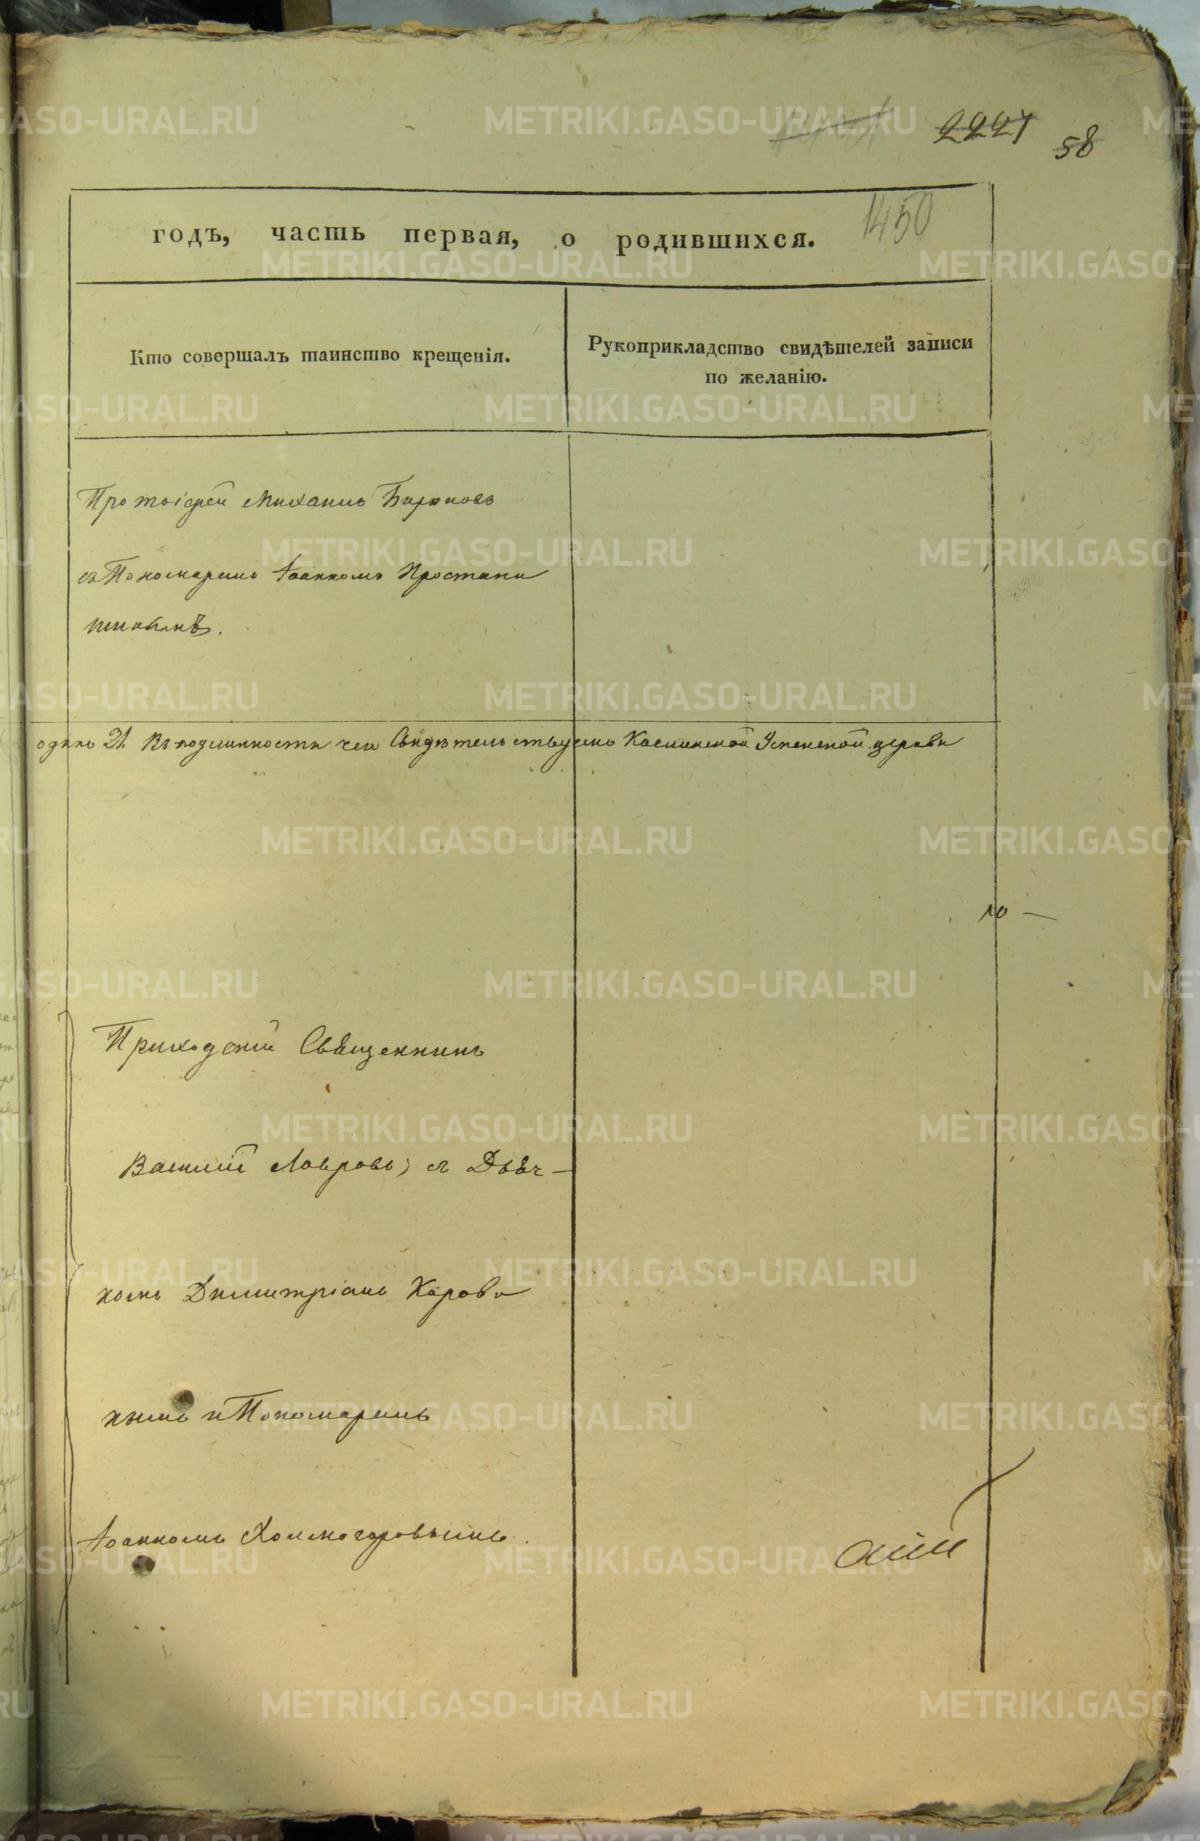 2221
58
1450
годъ, часть первая, о родившихся.
Кто совершалъ таинство крещенія.
Рукоприкладство свидѣтелей записи
по желанію.
Протоіерей Михаилъ Бирюковъ
съ Пономаремъ Іоанномъ
одинъ 21. Въ подлинности чего свидѣтельствуемъ Успенской церкви
ло —
Приходскій Священникъ
Василій Лавровъ, съ Дьяч-
комъ Димитріемъ Корови
нымъ и Пономаремъ
Іоанномъ Холмогоровымъ.
METRIKI.GASO-URAL.RU